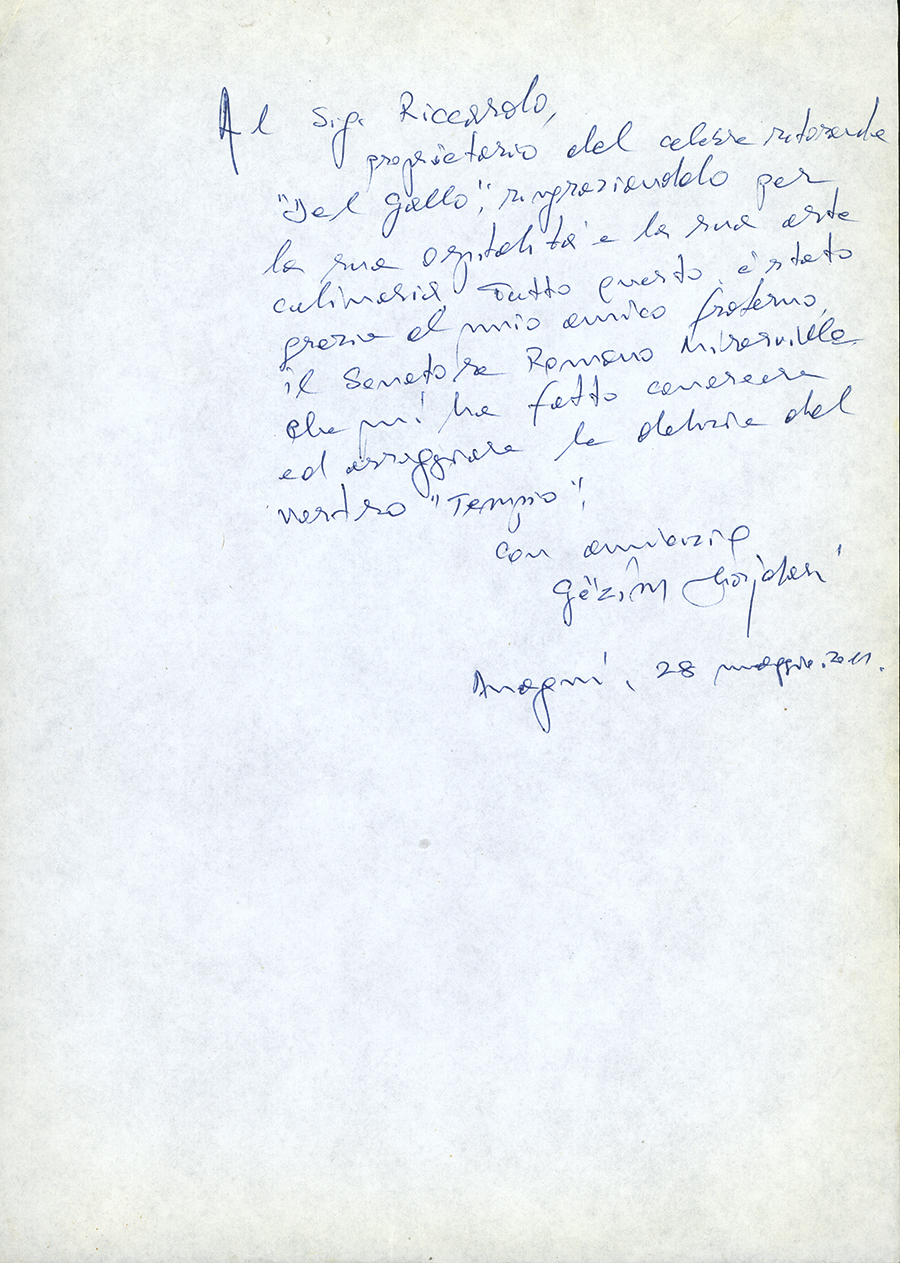 Al Sig. Riccardo,
proprietario del celebre ristorante
"Del Gallo", ringraziandolo per
la sua ospitalità e la sua arte
culinaria. Tutto questo, è stato
grazie al mio amico fraterno,
il Senatore Romano Misserville
che mi ha fatto conoscere
ed assaggiare le delizie del
vostro "Tempio",
con amicizia
Gëzim Hajdari
Anagni, 28 maggio. 2011.